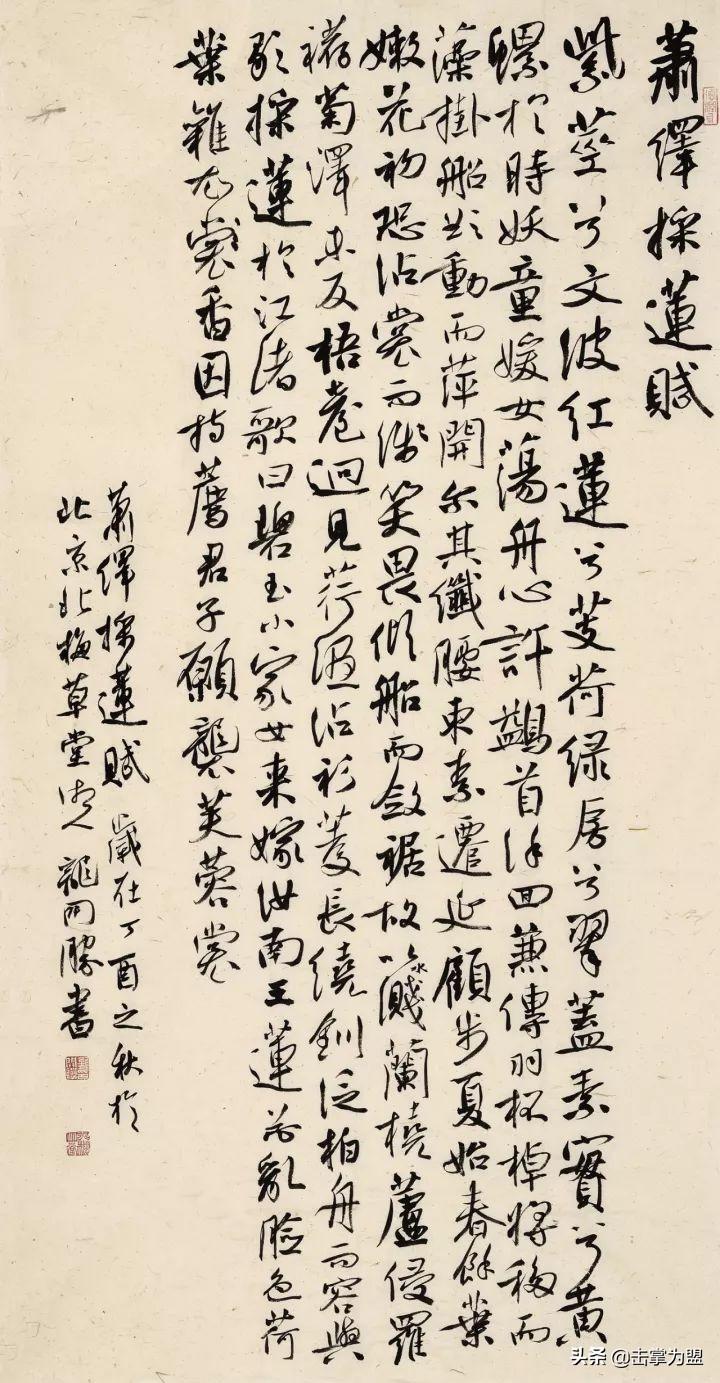 蕭繹採蓮賦
紫莖兮文波紅蓮兮芰荷绿房兮翠蓋素實兮黄
螺於時妖童媛女蕩舟心許鷁首徐回兼傳羽杯棹將移而
藻掛船欲動而萍開尔其纖腰束素遷延顧步夏始春餘葉
嫩花初恐沾裳而淺笑畏傾船而斂裾故以濺蘭橈蘆侵羅
菊澤未反梧臺迥見荇濕沾衫菱長繞釧泛柏舟而容與
歌採蓮於江渚歌曰碧玉小家女来嫁汝南王蓮花亂臉色荷
葉雜衣裳香因持薦君子願襲芙蓉裳
蕭繹採蓮賦 歲在丁酉之秋於
北京北梅草堂湘人龍開勝書
头条 @击掌为盟